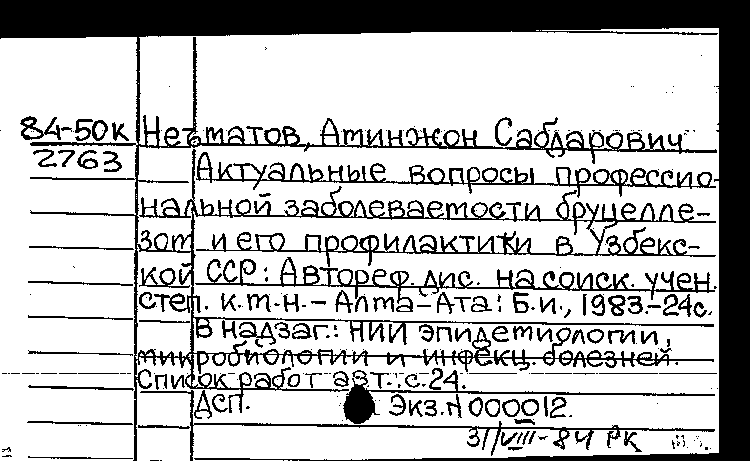 84-50к Негматов, Аминжон Сабдарович
2763 Актуальные вопросы профессио-
нальной заболеваемости бруцелле-
зом и его профилактики в Узбекс-
кой ССР: Автореф. дис. на соиск. учен.
степ. к.м.н. - Алма-Ата: Б.и., 1983.-24с.
В надзаг.: НИИ эпидемиологии,
микробиологии и инфекц. болезней.
Список работ авт.: с.24.
ДСП. Экз.N 000012.
31/VIII-84 РК